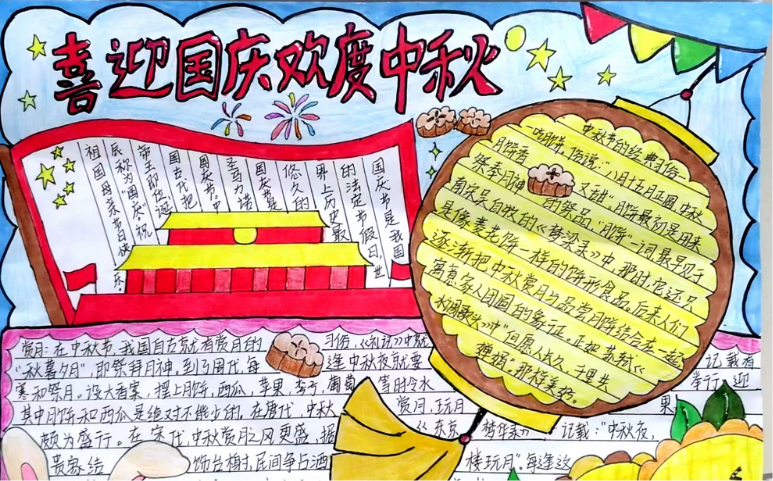 喜迎国庆欢度中秋
国庆节是我国
的法定节假日,世
界上历史最
悠久的
国庆节是
圣马力诺
国庆节。中
国古代把
帝王即位诞
辰称为“国庆”祝
祖国母亲节日快乐.
中秋节的经典习俗一
吃月饼。俗话:“八月十五月正圆,中秋
月饼香 又甜”月饼最初是用来
祭奉月神 的祭品,“月饼”一词,最早见于
南宋吴自牧的《梦梁录》中,那时,它还只
是像菱花饼一样的饼形食品,后来人们
逐渐把中秋赏月与品赏月饼结合在一起
寓意家人团圆的象征。正如苏轼《
水调歌头》中“但愿人长久,千里共
婵娟。”那样美好。
赏月:在中秋节,我国自古就有赏月的 习俗,《礼记》中就 记载有
“秋暮夕月”即祭拜月神,到了周代,每 逢中秋夜就要 举行迎
寒和祭月。设大香案,摆上月饼,西瓜,苹果,李子,葡萄 等时令水 果
其中月饼和西瓜是绝对不能少的,在唐代,中秋 赏月,玩月
颇为盛行。在宋代,中秋赏月之风更盛,据 《东京 梦华录》 记载:“中秋夜,
贵家结 饰台榭,民间争占酒 楼玩月”。每逢这